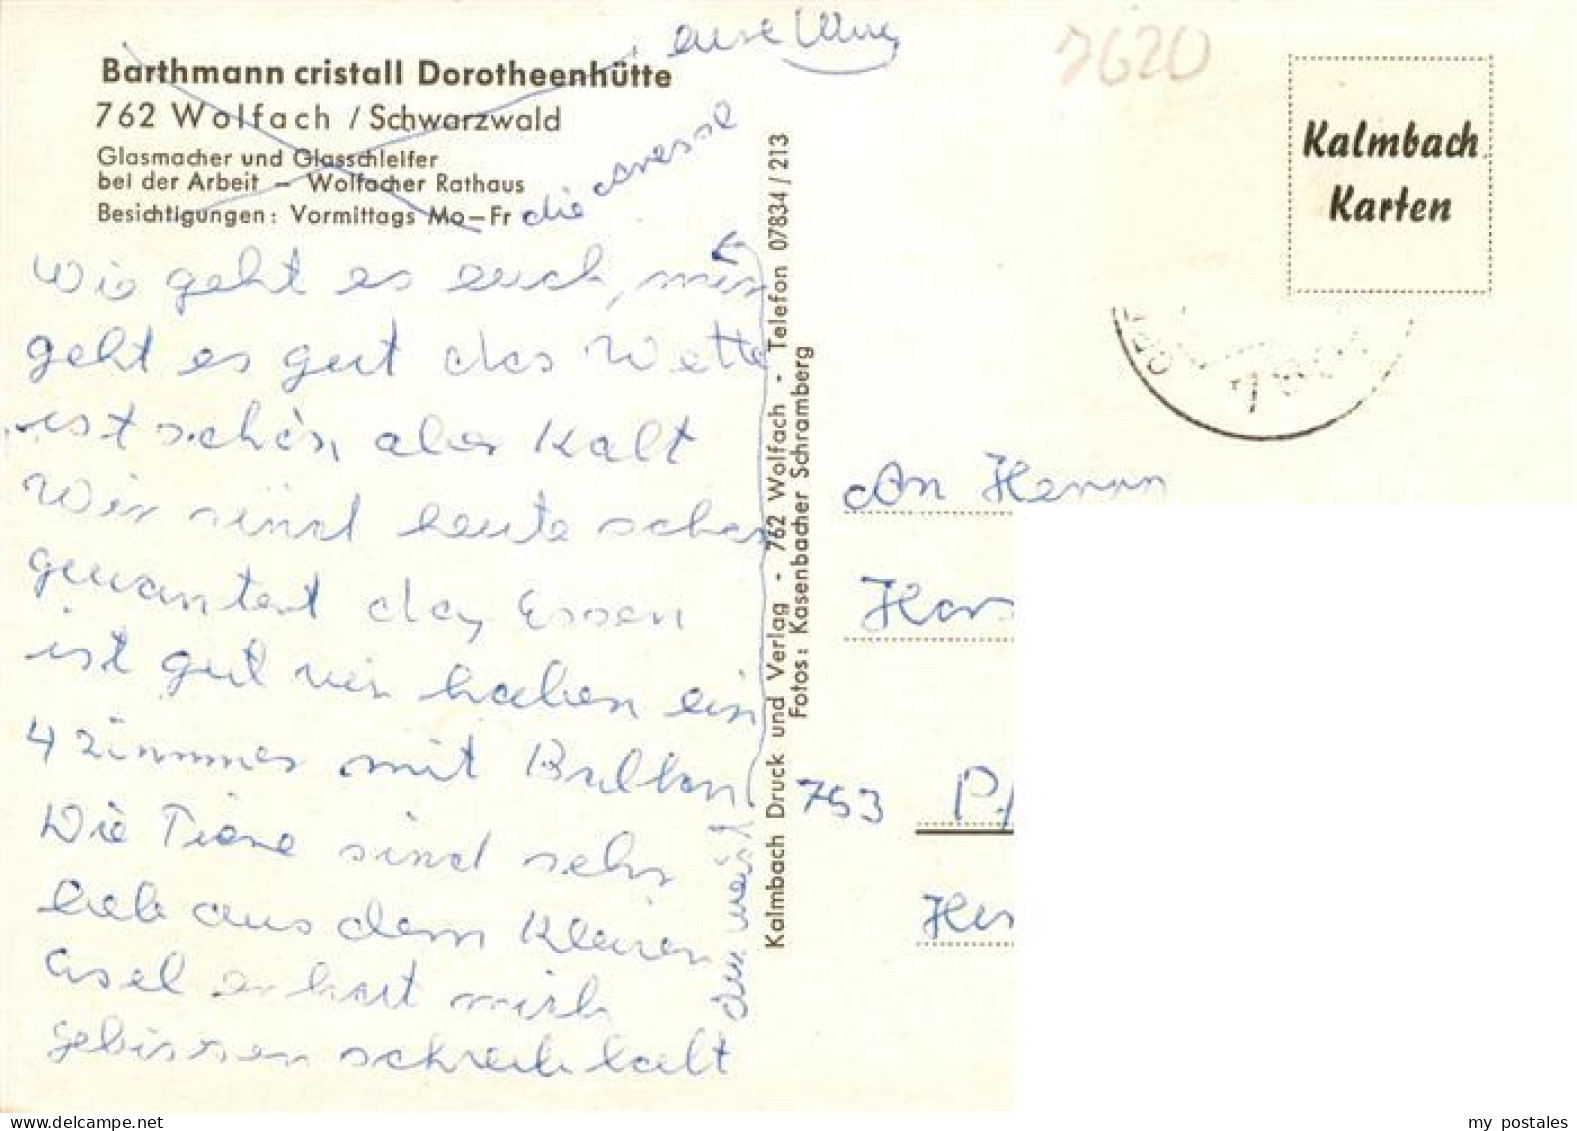 Barthmann cristall Dorotheenhütte
762 Wolfach / Schwarzwald
Glasmacher und Glasschleifer
bei der Arbeit – Wolfacher Rathaus
Besichtigungen: Vormittags Mo–Fr
Wie geht es euch, mir
geht es gut das Wette
ist schön, aber Kalt
Wir sind heute schon
gewantert das Essen
ist gut wir haben ein
4 Zimmer mit Balkon
Die Tiere sind sehr
lieb aus dem Kleinen
esel er hat mich
gebissen schreib balt
ihr weist
die Adresse
eure
Kalmbach Druck und Verlag - 762 Wolfach - Telefon 07834/213
Fotos: Kasenbacher Schramberg
7620
Kalmbach
Karten
An Herrn
753
my postales